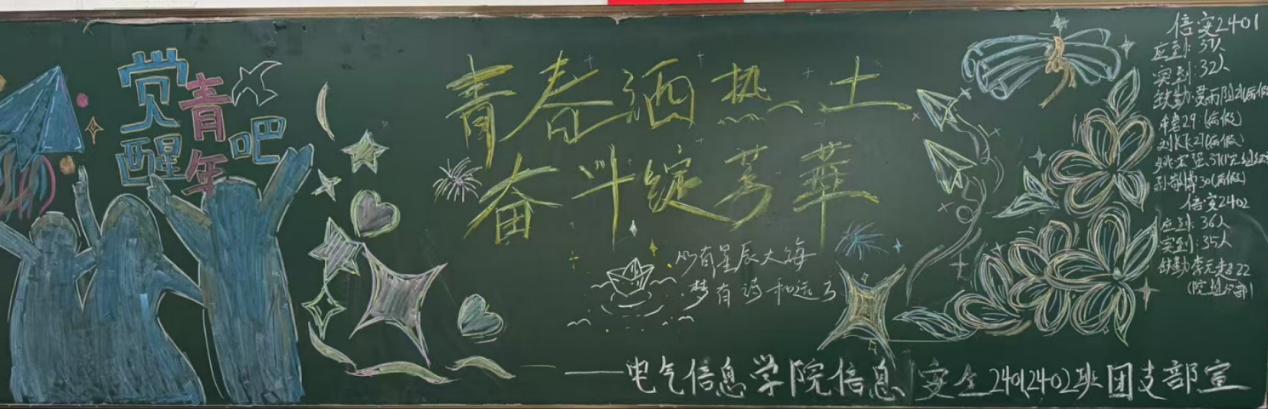 觉醒吧
青年
青春洒热土
奋斗绽芳華
心有星辰大海
梦有诗和远方
——电气信息学院信息安全2401 2402班团支部宣
信安2401
应到:37人
实到:32人
信安2402
应到:36人
实到:35人